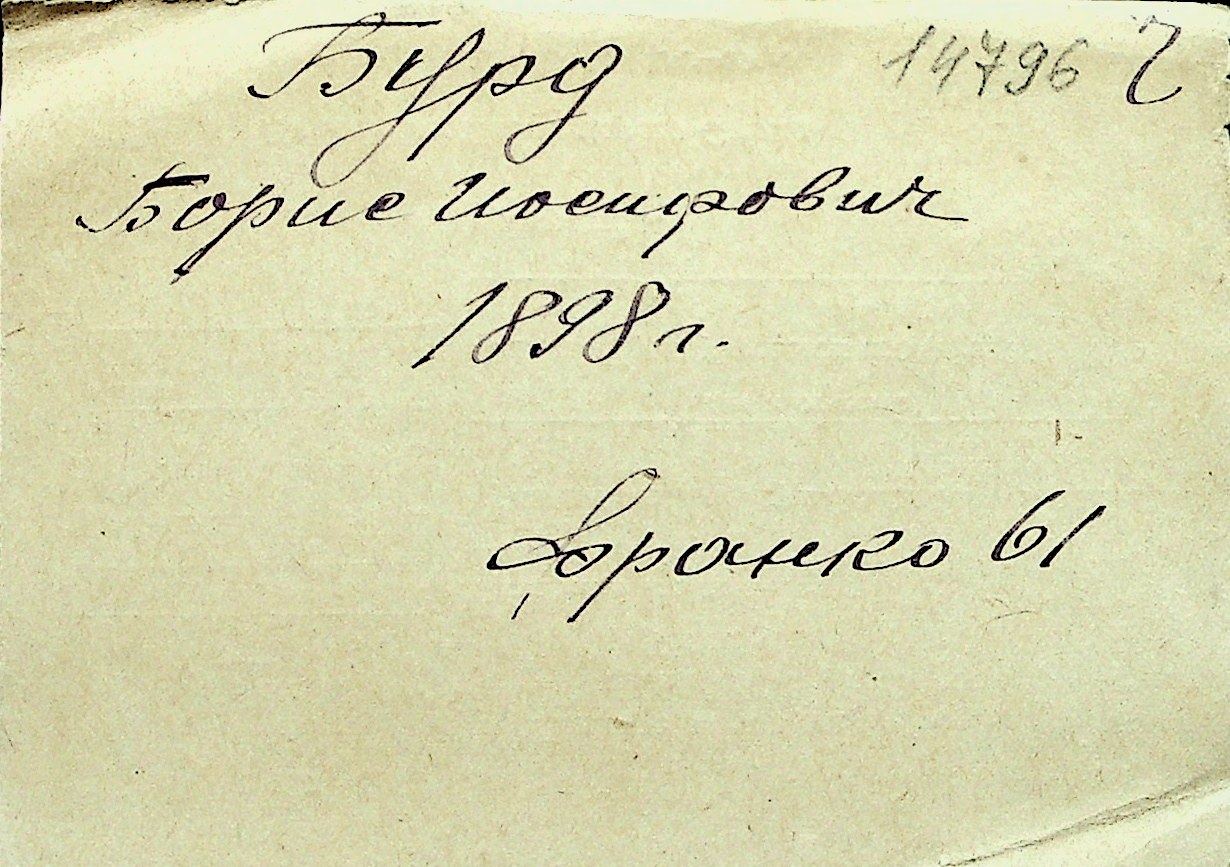 Бурд 14796
Борис Иосифович
1898 г.
Франко 61